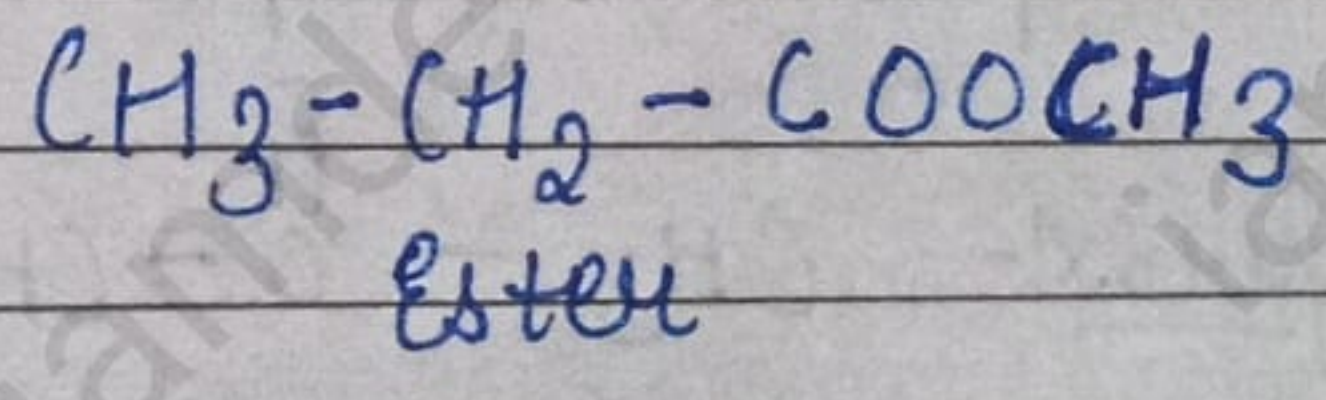 CH₃ - CH₂ - COOCH₃
Ester